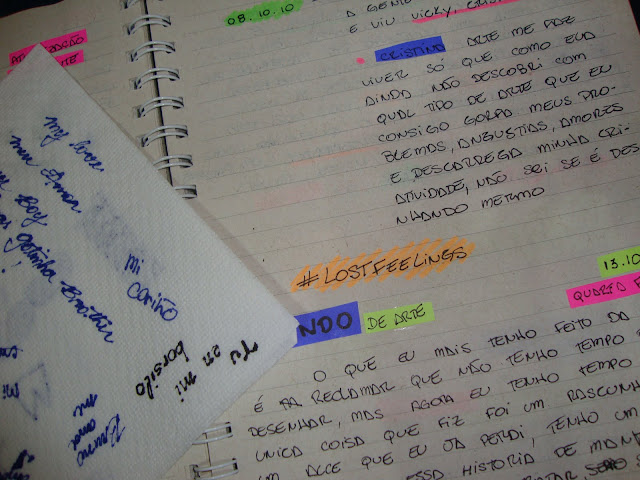 08.10.10
A GENTE
E VIU VICKY, CRIS
CRISTINA ARTE ME FAZ
VIVER SÓ QUE COMO ELA
AINDA NÃO DESCOBRI COM
QUAL TIPO DE ARTE QUE EU
CONSIGO GORFA MEUS PRO-
BLEMAS, ANGUSTIAS, AMORES
E DESCARREGA MINHA CRI-
ATIVIDADE, NÃO SEI SE É DES
NHANDO MERMO
#LOSTFEELINGS
13.10
QUARTA F
NDO DE ARTE
O QUE EU MAIS TENHO FEITO DA
É FA RECLAMAR QUE NÃO TENHO TEMPO
DESENHAR, MAS AGORA EU TENHO TEMPO
UNICA COISA QUE FIZ FOI UM RASCUN
UM ALCE QUE EU JA PERDI, TENHO UM
ESSA HISTORIA DE MAN
my love
meu Amor
Boy
gatinha Brother
mi
cariño
Tu en mi
borsilo
me